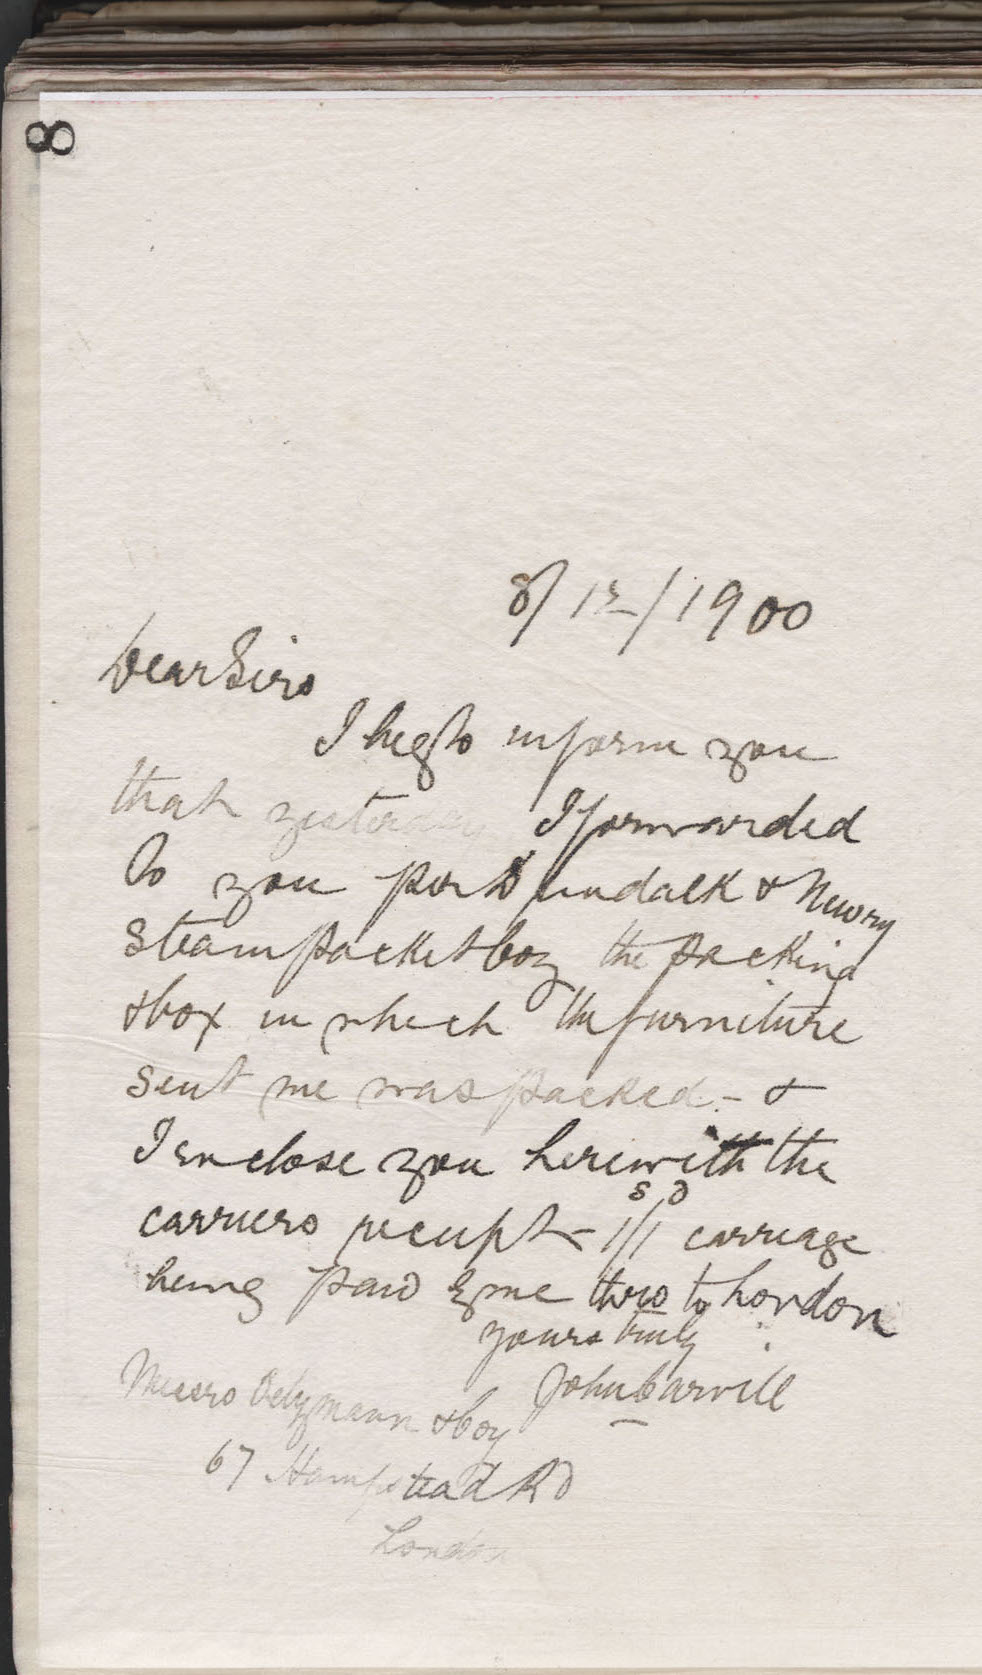 8
8/12/1900
Dear Sirs
I beg to inform you
that yesterday I forwarded
to you per Dundalk & Newry
Steam Packet Coy the packing
box in which the furniture
sent me was packed - &
I enclose you herewith the
carriers receipt - 1/1 carriage
s d
being paid by me thro to London
yours truly
John Carvill
Messrs Oetzmann & Coy
67 Hampstead Rd
London